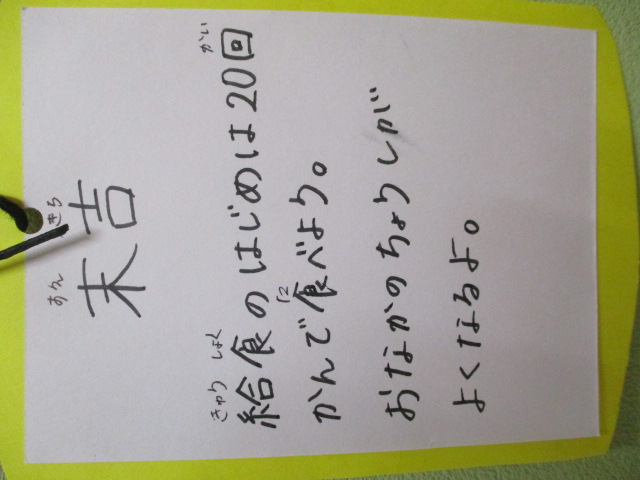 すえ きち
末吉
きゅう しょく かい
給食のはじめは20回
た
かんで食べよう。
おなかのちょうしが
よくなるよ。